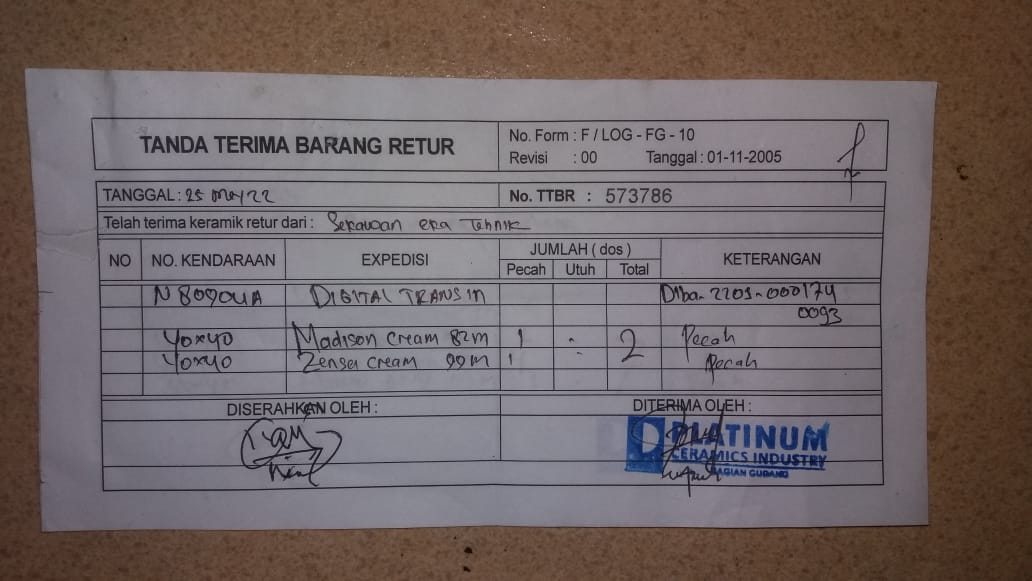 TANDA TERIMA BARANG RETUR
No. Form : F / LOG - FG - 10
Revisi : 00 Tanggal : 01-11-2005
TANGGAL : 25 May 22 No. TTBR : 573786
Telah terima keramik retur dari : era Tehnik
NO NO. KENDARAAN EXPEDISI JUMLAH ( dos ) KETERANGAN
Pecah Utuh Total
DIGITAL TRANSIN
0093
40x40 Madison Cream 82m 1 - 2 Pecah
40x40 Zensa Cream 99m 1 - Pecah
DISERAHKAN OLEH : DITERIMA OLEH :
PLATINUM
CERAMICS INDUSTRY
BAGIAN GUDANG